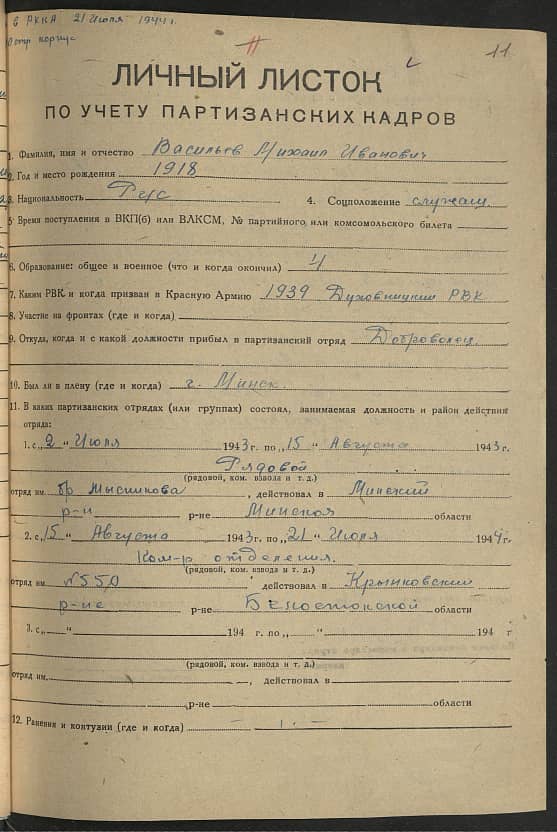 в РККА 21 Июля 1944 г.
стр корпус
11
ЛИЧНЫЙ ЛИСТОК
ПО УЧЕТУ ПАРТИЗАНСКИХ КАДРОВ
1. Фамилия, имя и отчество Васильев Михаил Иванович
2. Год и место рождения 1918
3. Национальность Рус 4. Соцположение служащ.
5. Время поступления в ВКП(б) или ВЛКСМ, № партийного или комсомольского билета
6. Образование: общее и военное (что и когда окончил) 4
7. Каким РВК и когда призван в Красную Армию 1939 Духовницким РВК
8. Участие на фронтах (где и когда)
9. Откуда, когда и с какой должности прибыл в партизанский отряд Доброволец.
10. Был ли в плену (где и когда) г. Минск.
11. В каких партизанских отрядах (или группах) состоял, занимаемая должность и район действия
отряда:
1. с „2 “ Июля 1943 г. по „15 “ Августа 1943 г.
Рядовой
(рядовой, ком. взвода и т. д.)
отряд им. бр Мысникова, действовал в Минский
р-н р-не Минской области
2. с „15 “ Августа 1943 г. по „21 “ Июля 1944 г.
Ком-р отделения.
(рядовой, ком. взвода и т. д.)
отряд им. №550 действовал в Крынковский
р-не р-не Белостокской области
3. с „ “ 194 г. по „ “ 194 г
(рядовой, ком. взвода и т. д.)
отряд им. , действовал в
р-не области
12. Ранения и контузии (где и когда) –